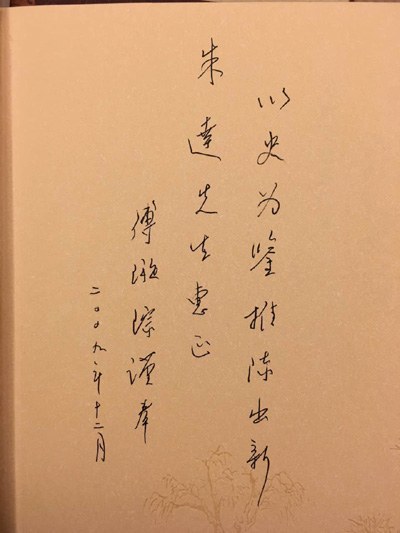 以史为鉴推陈出新
朱达先生惠正
傅璇琮谨奉
二〇〇九年十二月